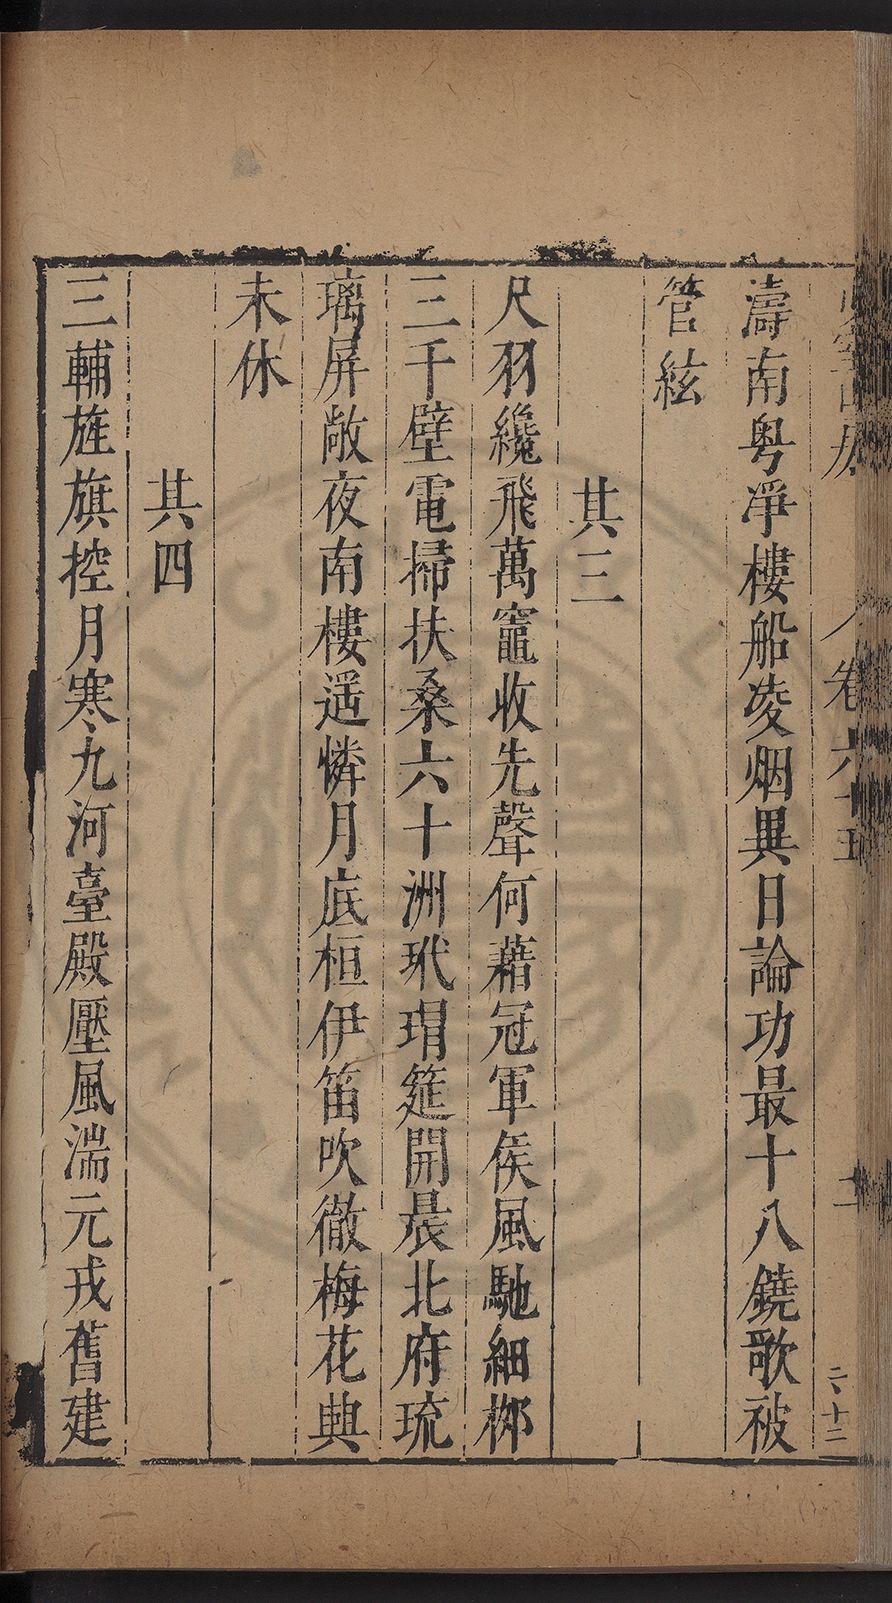 卷六十五
二
二、十二
濤南粤凈樓船凌烟異日論功最十八鐃歌被
管絃
其三
尺羽纔飛萬竈收先聲何藉冠軍侯風馳細栁
三千壁電掃扶桑六十洲玳瑁筵開晨北府琉
璃屏敞夜南樓遥憐月底桓伊笛吹徹梅花興
未休
其四
三輔旌旗控月寒九河臺殿壓風湍元戎舊建